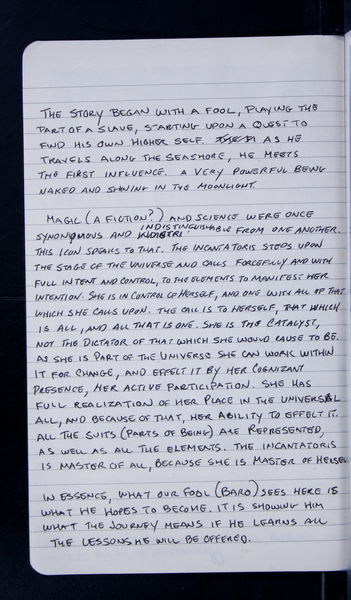 THE STORY BEGAN WITH A FOOL, PLAYING THE
PART OF A SLAVE, STARTING UPON A QUEST TO
FIND HIS OWN HIGHER SELF. AS HE
TRAVELS ALONG THE SEASHORE, HE MEETS
THE FIRST INFLUENCE. A VERY POWERFUL BEING
NAKED AND SHINING IN THE MOONLIGHT.
MAGIC (A FICTION?) AND SCIENCE WERE ONCE
SYNONYMOUS AND INDISTINGUISHABLE FROM ONE ANOTHER.
THIS ICON SPEAKS TO THAT. THE INCANTATORIS STEPS UPON
THE STAGE OF THE UNIVERSE AND CALLS FORCEFULLY AND WITH
FULL INTENT AND CONTROL, TO THE ELEMENTS TO MANIFEST HER
INTENTION. SHE IS IN CONTROL OF HERSELF, AND ONE WITH ALL OF THAT
WHICH SHE CALLS UPON. THE CALL IS TO HERSELF, THAT WHICH
IS ALL, AND ALL THAT IS ONE. SHE IS THE CATALYST,
NOT THE DICTATOR OF THAT WHICH SHE WOULD CAUSE TO BE.
AS SHE IS PART OF THE UNIVERSE SHE CAN WORK WITHIN
IT FOR CHANGE, AND EFFECT IT BY HER COGNIZANT
PRESENCE, HER ACTIVE PARTICIPATION. SHE HAS
FULL REALIZATION OF HER PLACE IN THE UNIVERSAL
ALL, AND BECAUSE OF THAT, HER ABILITY TO EFFECT IT.
ALL THE SUITS (PARTS OF BEING) ARE REPRESENTED,
AS WELL AS ALL THE ELEMENTS. THE INCANTATORIS
IS MASTER OF ALL, BECAUSE SHE IS MASTER OF HERSELF
IN ESSENCE, WHAT OUR FOOL (BARD) SEES HERE IS
WHAT HE HOPES TO BECOME. IT IS SHOWING HIM
WHAT THE JOURNEY MEANS IF HE LEARNS ALL
THE LESSONS HE WILL BE OFFERED.